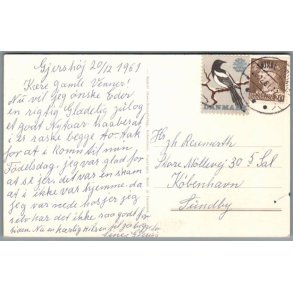 Gjershøj 20/12 1961
Kære gamle Venner!
Nu vil jeg ønske Eder
en rigtig Glædelig Jul og
et godt Nytaar haaber at
I er raske begge to. Tak
for at I kom til min
Fødelsdag, jeg var glad for
at se jer, det var en skam
at I ikke var hjemme da
jeg var nede hos jer jeg
selv har det ikke saa godt for
tiden. Nu en kærlig hilsen
DANMARK
Hr
Store Møllevej 30 5 Sal
København
Sundby